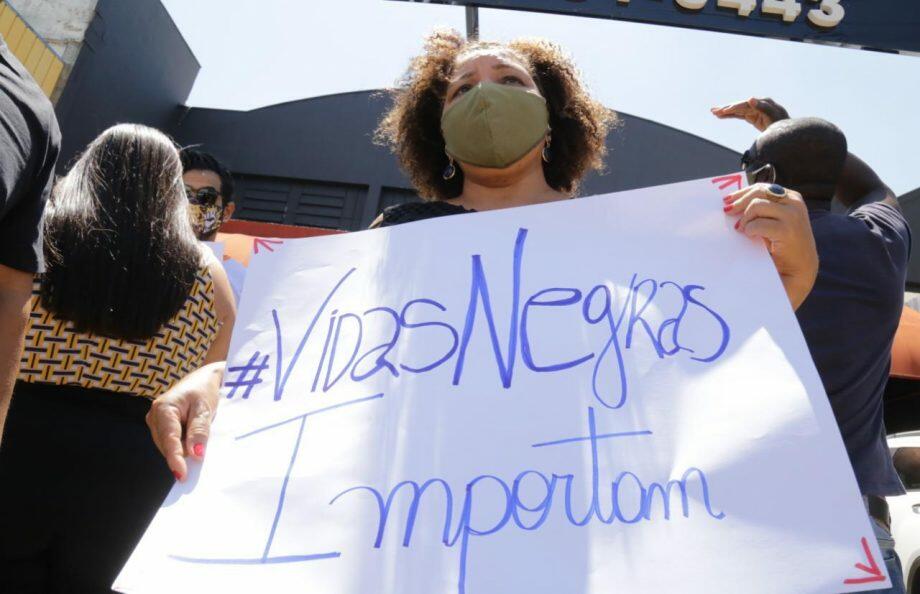 #Vidas Negras
Importam